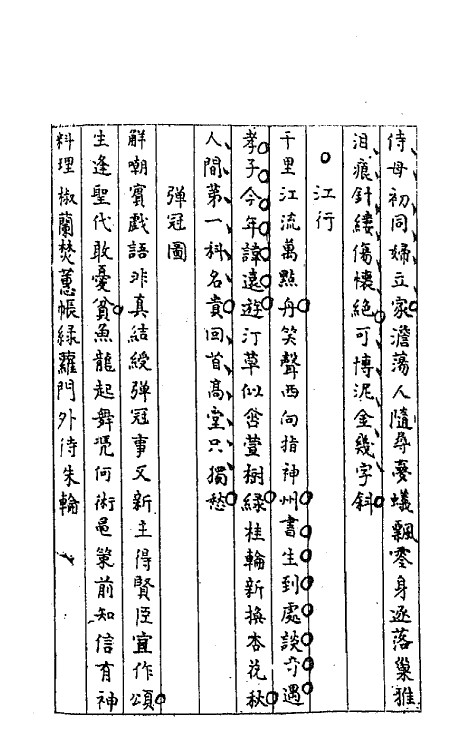 侍母初同婦立家澹蕩人隨尋憂蟻飄零身逐落巢雅
泪痕針縷傷懷絶可博泥金幾字斜
江行
千里江流萬點舟笑聲西向指神州書生到處談奇遇
孝子今年諱遠遊汀草似含萱樹緑桂輪新換杏花秋
人間第一科名貴回首高堂只獨愁
彈冠圖
解嘲賓戲語非真結綬彈冠事又新主得賢臣宜作頌
生逢聖代敢憂貧魚龍起舞何術黽策前知信有神
料理椒蘭焚蕙帳緑蘿門外待朱輪